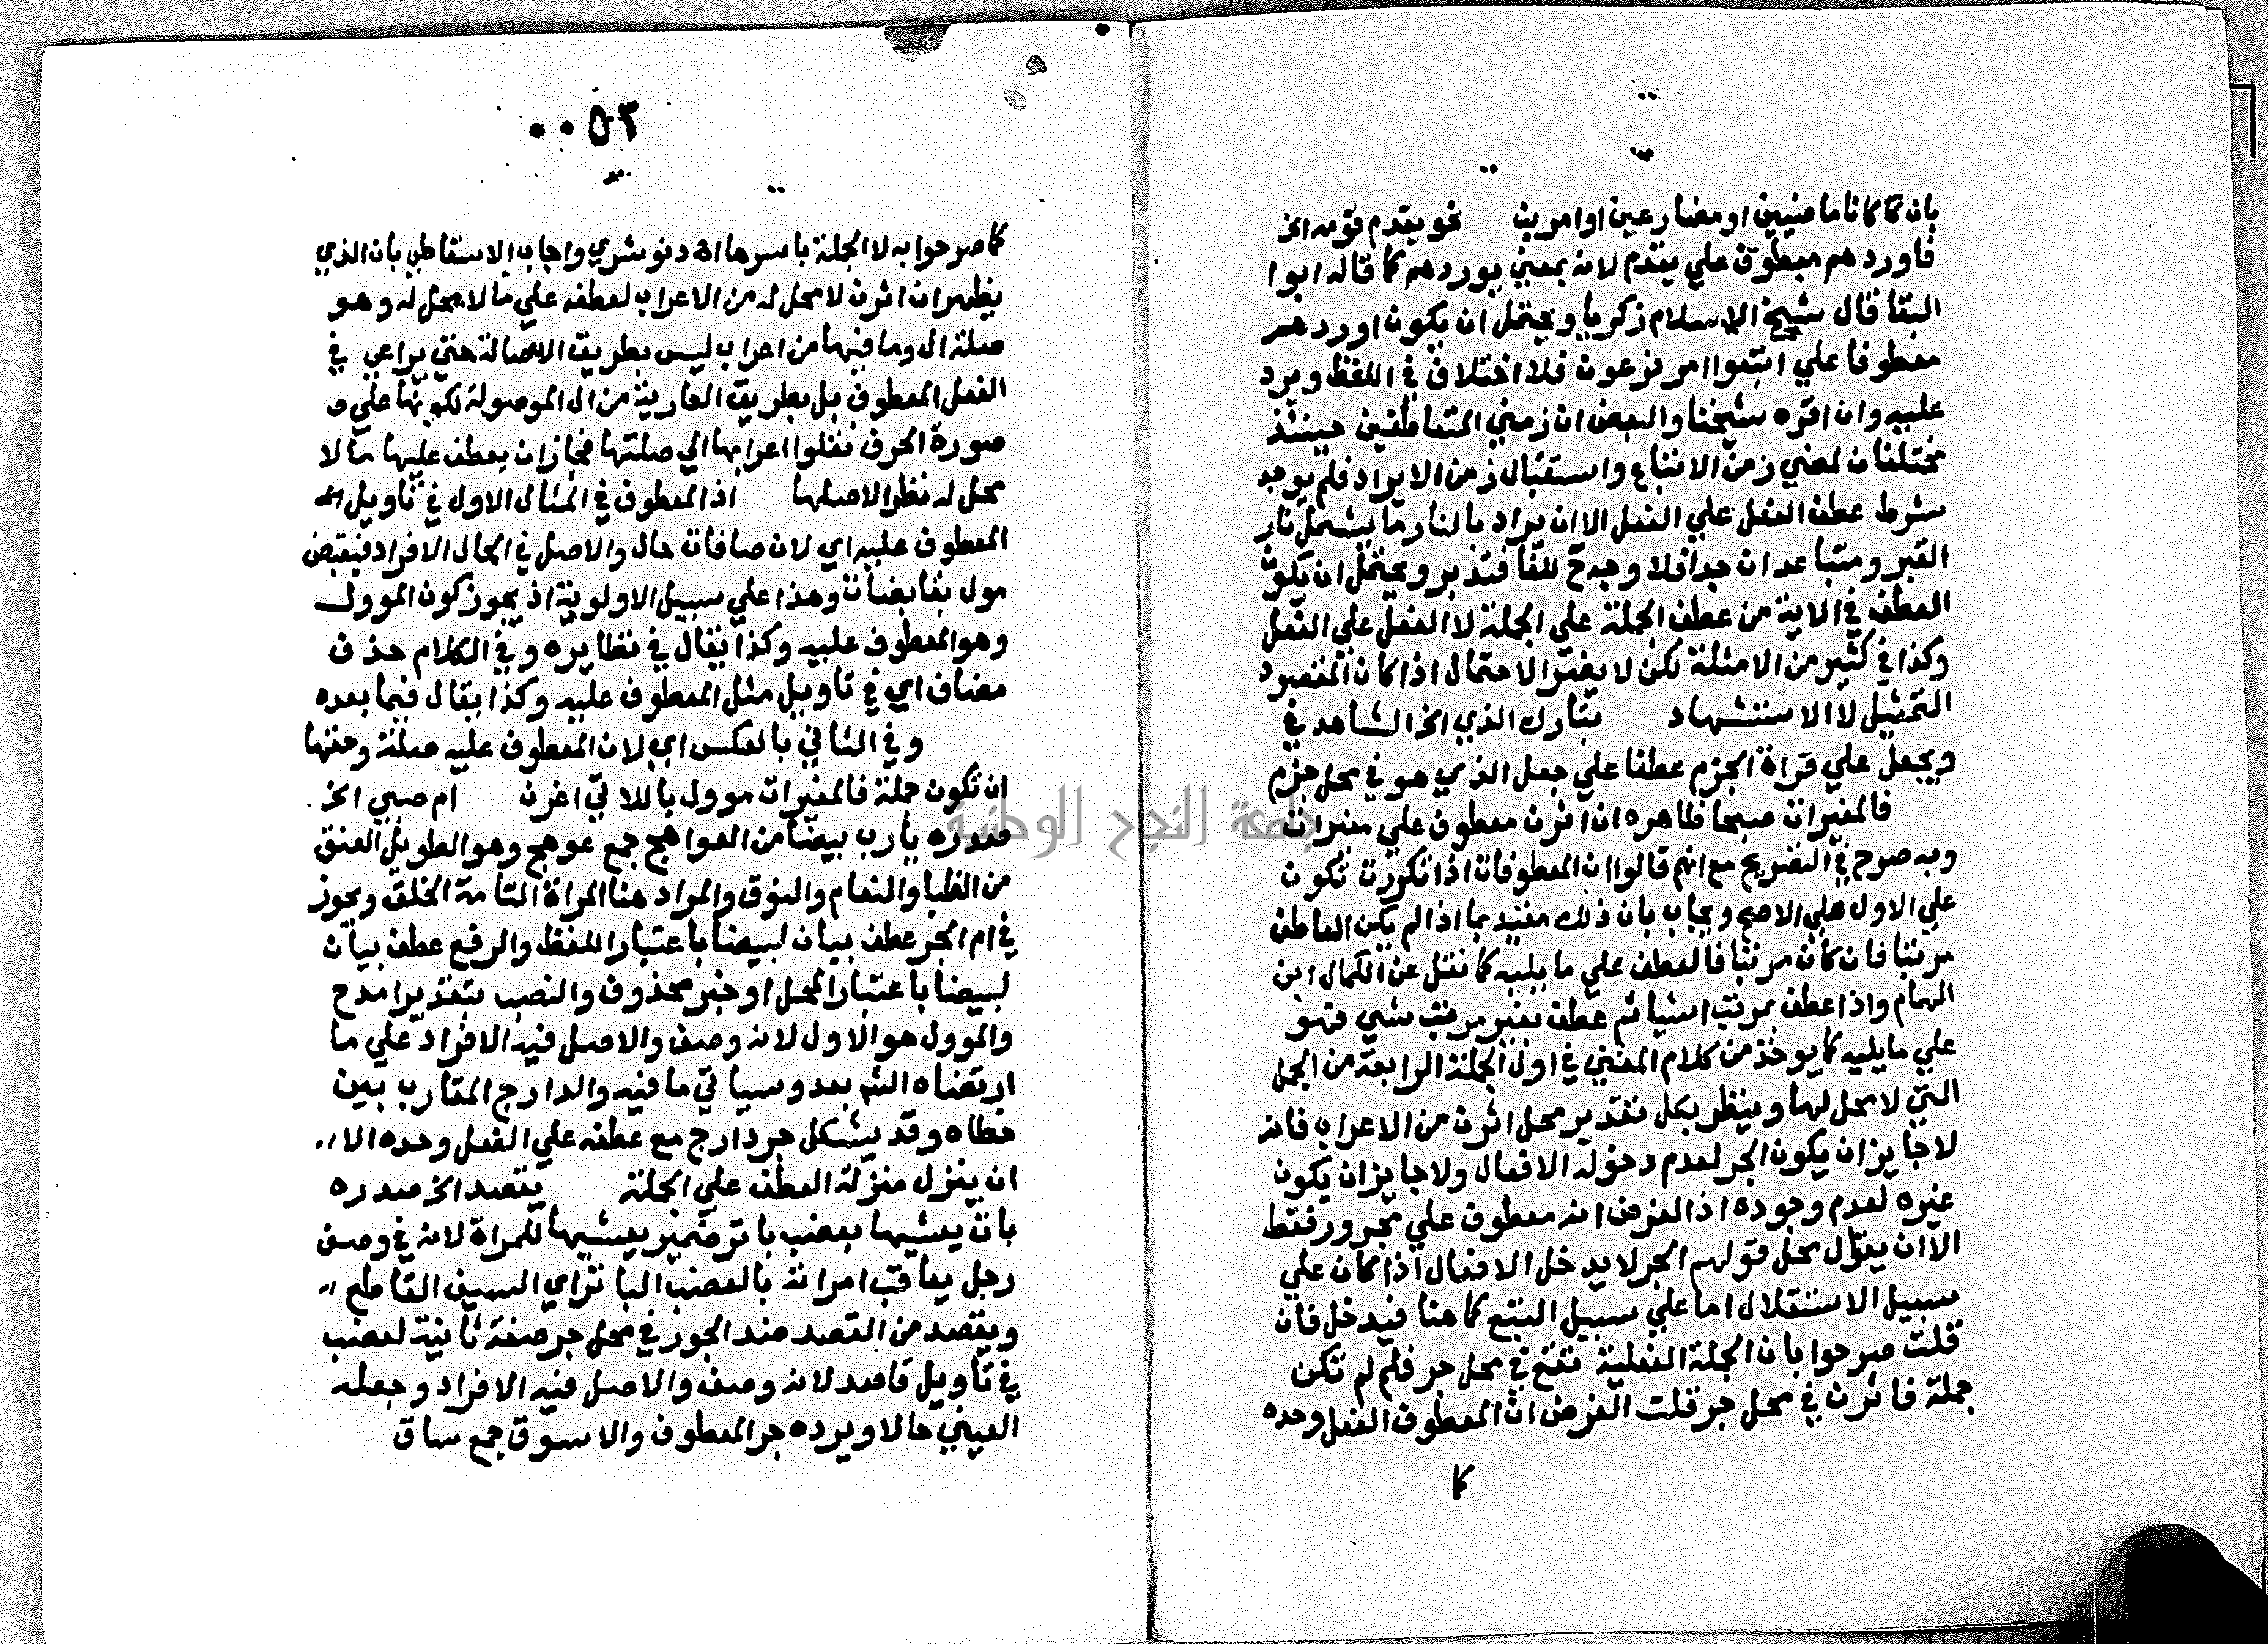 بان كا كانا ماضيين او مضارعين او امرين نحو يقدم قومه الخ
فاوردهم معطوف علي يقدم لانه بمعني يوردهم كما قاله ابوا
البقا قال شيخ الاسلام زكريا ويحتمل ان يكون اوردهم
معطوفا علي اتبعوا امر فرعون فلا اختلاف في اللفظ ويرد
عليه وان اقره شيخنا والبعض ان زمني المتعاطفين حينئذ
مختلفان لمضي زمن الاتباع واستقبال زمن الايراد فلم يوجد
شرط عطف الفعل علي الفعل الا ان يراد بالنار ما يشمل نار
القبر ومتباعدان جدا فلا وجه ح للفا فتدبر ويحتمل ان يكون
العطف في الاية من عطف الجملة علي الجملة لا الفعل علي الفعل
وكذا في كثير من الامثلة لكن لا يضر الاحتمال اذا كان المقصود
التمثيل لا الاستشهاد تبارك الذي الخ الشاهد في
ويجعل علي قراة الجزم عطفا علي جعل الذي هو في محل جزم
فالمغيرات صبحا ظاهره ان اثرن معطوف علي مغيرات
وبه صرح في التصريح مع انهم قالوا ان المعطوفات اذا تكررت تكون
علي الاول علي الاصح ويجاب بان ذلك مقيد بما اذا لم يكن العاطف
مرتبا فان كان مرتبا فالعطف علي ما يليه كما نقل عن الكمال ابن
الهمام واذا عطف بمرتب اشيا ثم عطف بغير مرتب شي فهو
علي ما يليه كما يوخذ من كلام المغني في اول الجملة الرابعة من الجمل
التي لا محل لها وينظر بكل تقدير محل اثرن من الاعراب فانه
لا جايز ان يكون الجر لعدم دخوله الافعال ولا جايز ان يكون
غيره لعدم وجوده اذ الغرض انه معطوف علي مجرور فقط
الا ان يقال محل قولهم الجر لا يدخل الافعال اذا كان علي
سبيل الاستقلال اما علي سبيل التبع كما هنا فيدخل فان
قلت صرحوا بان الجملة الفعلية تقع في محل جر فلم لم تكن
جملة فاثرن في محل جر قلت الغرض ان المعطوف الفعل وحده
كا
٥٣
كما صرحوا به لا الجملة باسرها اه دنوشري واجاب الاسقاطي بان الذي
يظهر ان اثرن لا محل له من الاعراب لعطفه علي ما لا محل له وهو
صلة ال وما فيها من اعراب ليس بطريق الاصالة حتي يراعي في
الفعل المعطوف بل بطريق العارية من ال الموصولة لكونها علي
صورة الحرف نقلوا اعرابها الي صلتها فجاز ان يعطف عليها ما لا
محل له نظرا لاصلها اذ المعطوف في المثال الاول في تاويل الخ
المعطوف عليه اي لان صافات حال والاصل في الحال الافراد فيقبض
مول بقابضات وهذا علي سبيل الاولوية اذ يجوز كون الموول
وهو المعطوف عليه وكذا يقال في نظايره وفي الكلام حذف
مضاف اي في تاويل مثل المعطوف عليه وكذا يقال فيما بعده
وفي الثاني بالعكس اي لان المعطوف عليه صلة وحقها
ان تكون جملة فالمغيرات موول باللاتي اغرن ام صبي الخ
صدره يا رب بيضا من العواهج جمع عوهج وهو الطويل العنق
من الظبا والنعام والنوق والمراد هنا المراة التامة الخلق ويجوز
في ام الجر عطف بيان لبيضا باعتبار اللفظ والرفع عطف بيان
لبيضا باعتبار المحل او خبر محذوف والنصب بتقدير امدح
والموول هو الاول لانه وصف والاصل فيه الافراد علي ما
ارتضاه الشم بعد وسياتي ما فيه والدارج المقارب بين
خطاه وقد يشكل جر دارج مع عطفه علي الفعل وحده الا
ان ينزل منزلة العطف علي الجملة يقصد الخ صدره
بات يعشيها بعضب باتر ضمير يعشيها للمراة لانه في وصف
رجل يعاقب امراته بالعضب الباتر اي السيف القاطع
ويقصد من القصد ضد الجور في محل جر صفة ثانية لعضب
في تاويل قاصد لانه وصف والاصل فيه الافراد وجعله
العيني حالا ويرده جر المعطوف والاسوق جمع ساق
جامعة النجاح الوطنية